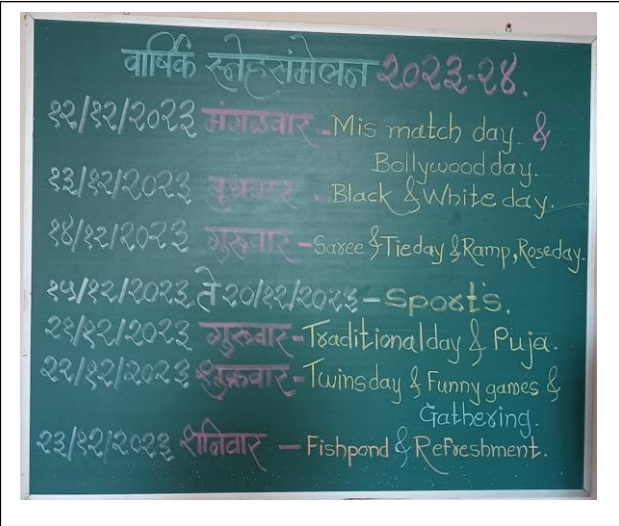 वार्षिक स्नेहसंमेलन २०२३-२४.
१२/१२/२०२३ मंगळवार - Mis match day. &
Bollywood day.
१३/१२/२०२३ बुधवार - Black & White day.
१४/१२/२०२३ गुरुवार - Saree & Tie day & Ramp, Rose day.
१५/१२/२०२३ ते २०/१२/२०२३ - Sports.
२१/१२/२०२३ गुरुवार - Traditional day & Puja.
२२/१२/२०२३ शुक्रवार - Twins day & Funny games &
Gathering.
२३/१२/२०२३ शनिवार - Fishpond & Refreshment.